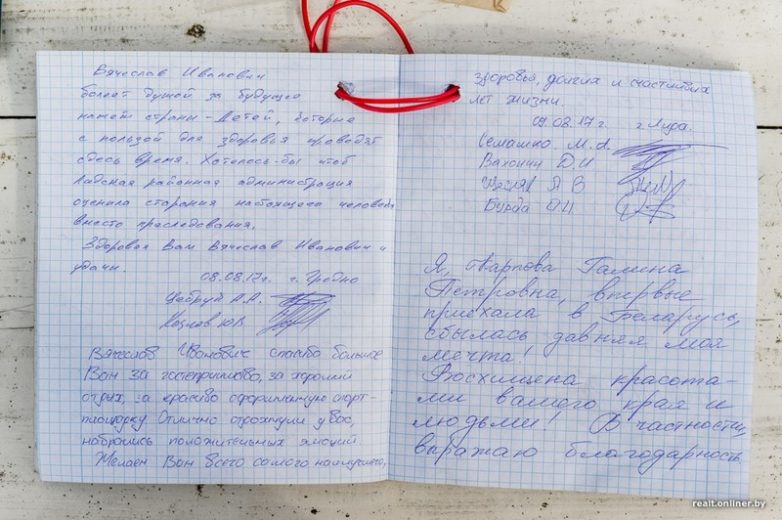 Вячеслав Иванович
болеет душой за будущее
нашей страны - Детей, которые
с пользой для здоровья проводят
здесь время. Хотелось-бы чтоб
Лидская районная администрация
оценила старания настоящего человека
вместо преследования.
Здоровья Вам Вячеслав Иванович и
удачи.
08.08.17г. г. Гродно
А.А.
Козлов Ю.В.
Вячеслав Иванович спасибо большое
Вам за гостеприимство, за хороший
отдых, за красиво оформленную спорт-
площадку. Отлично отдохнули у вас,
набрались положительных эмоций.
Желаем Вам всего самого наилучшего,
здоровья, долгих и счастливых
лет жизни.
09.08.17г. г. Лида.
Семашко М.А.
Вахонин Д.И
Я В
Бурда
Я, Галина
Петровна, впервые
приехала в Беларусь,
сбылась давняя моя
мечта!
Восхищена красота-
ми вашего края и
людьми! В частности,
выражаю благодарность
realt.onliner.by